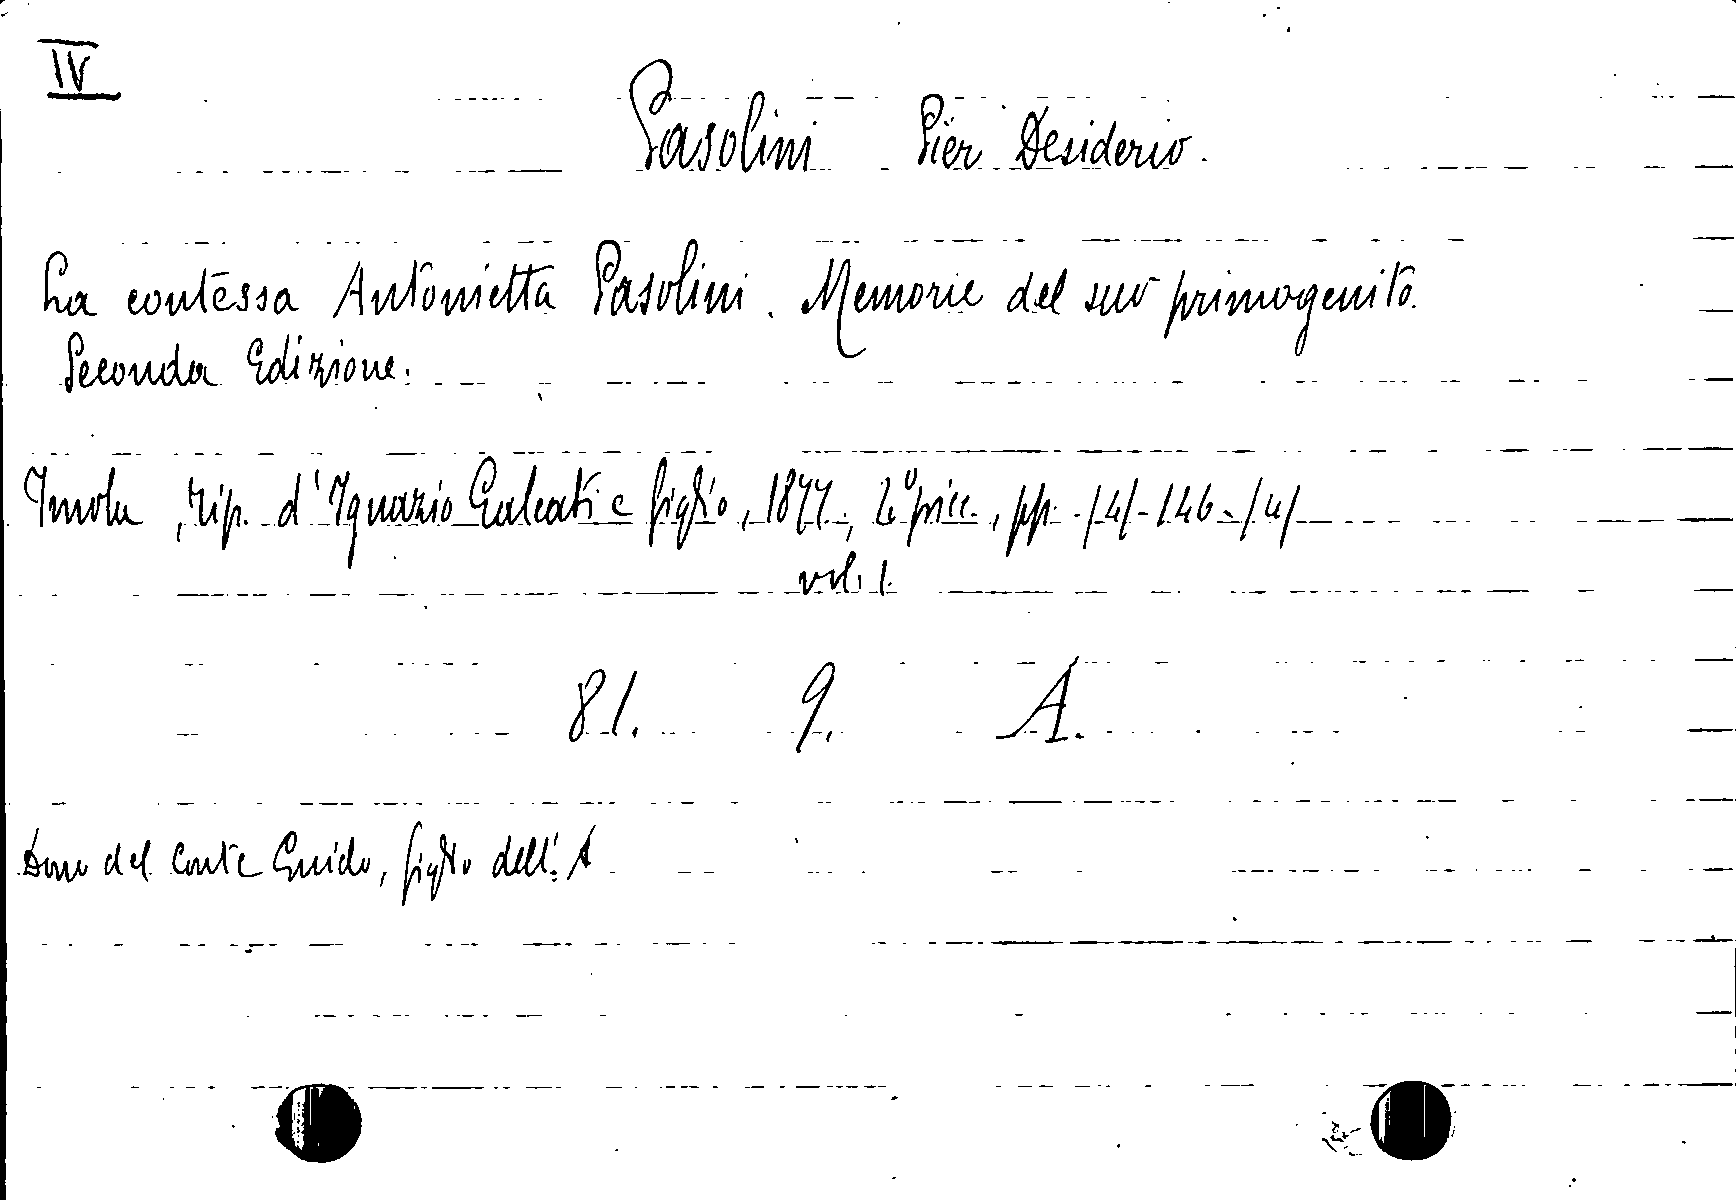 IV
Pasolini Pier Desiderio.
La contessa Antonietta Pasolini. Memorie del suo primogenito.
Seconda Edizione.
Imola, Tip. d'Ignazio Galeati e figlio, 1877, 4° picc., pp. /4/-146-/4/
vol. 1.
81. 9. A.
Dono del Conte Guido, figlio dell'A